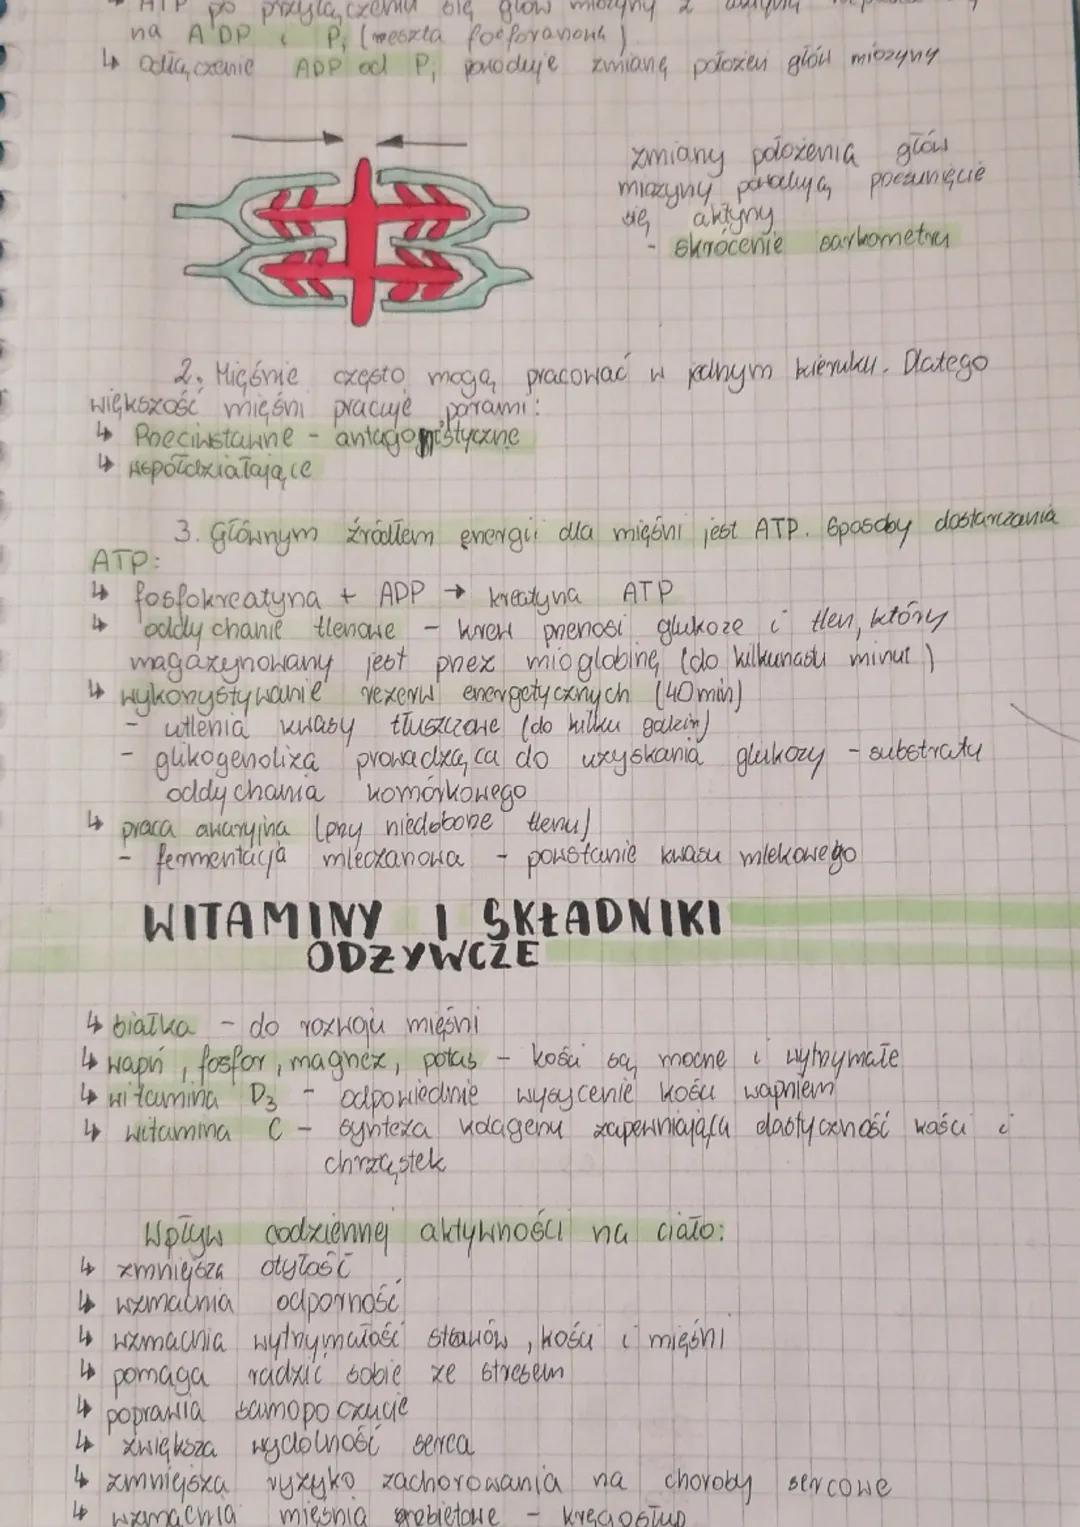 ATP po przyłączeniu się głów miozyny z
na ADP i Pi (reszta fosforanowa)
↳ odłączenie ADP od Pi powoduje zmianę położeń głów miozyny
zmiany położenia głów
miozyny powodują posunięcie
się aktyny
- skrócenie sarkometru
2. Mięśnie często mogą pracować w jednym kieruku. Dlatego
większość mięśni pracuje parami:
↳ Przeciwstawne - antagonistyczne
↳ współdziałające
3. Głównym źródłem energii dla mięśni jest ATP. Sposoby dostarczania
ATP:
↳ fosfokreatyna + ADP → kreatyna ATP
↳ oddychanie tlenowe - krew przenosi glukozę i tlen, który
magazynowany jest przez mioglobinę (do kilkunastu minut)
↳ wykorzystywanie rezerw energetycznych (40min)
- utlenia kwasy tłuszczowe (do kilku godzin)
- glikogenoliza prowadząca do uzyskania glukozy - substratu
oddychania komórkowego
↳ praca awaryjna (przy niedoborze tlenu)
- fermentacja mleczanowa - powstanie kwasu mlekowego
WITAMINY I SKŁADNIKI
ODŻYWCZE
↳ białka - do rozwoju mięśni
↳ wapń, fosfor, magnez, potas - kości są mocne i wytrzymałe
↳ witamina D3 - odpowiednie wysycenie kości wapniem
↳ witamina C - synteza kolagenu zapewniająca elastyczność kości i
chrząstek
Wpływ codziennej aktywności na ciało:
↳ zmniejsza otyłość
↳ wzmacnia odporność
↳ wzmacnia wytrzymałość stawów, kości i mięśni
↳ pomaga radzić sobie ze stresem
↳ poprawia samopoczucie
↳ zwiększa wydolność serca
↳ zmniejsza ryzyko zachorowania na choroby sercowe
↳ wzmacnia mięśnia grzbietowe - kręgosłup